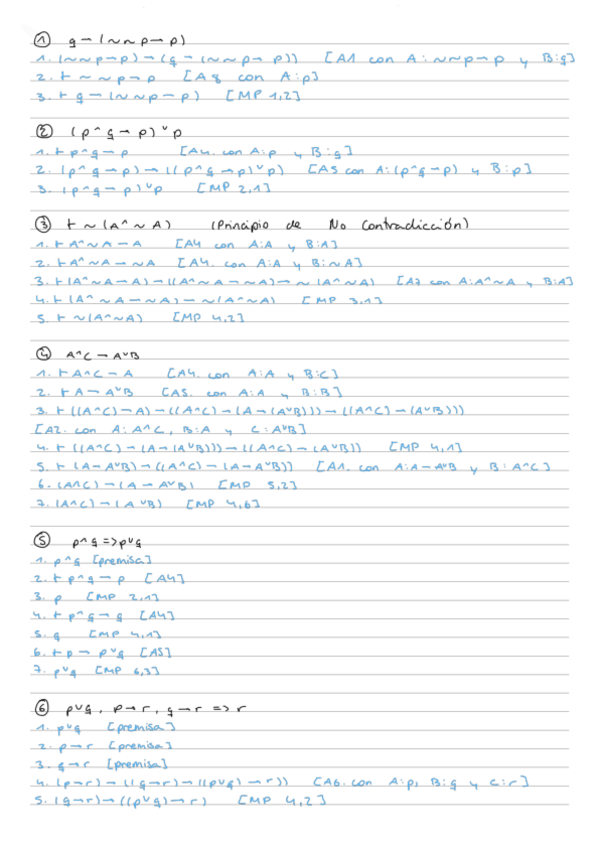 ① q → (∼∼p → p)
1. (∼∼p → p) → (q → (∼∼p → p)) [A1 con A: ∼∼p → p y B:q]
2. ⊢ ∼∼p → p [A8 con A:p]
3. ⊢ q → (∼∼p → p) [MP 1,2]
② (p ^ q → p) ∨ p
1. ⊢ p ^ q → p [A4. con A:p y B:q]
2. (p ^ q → p) → ((p ^ q → p) ∨ p) [A5 con A: (p ^ q → p) y B:p]
3. (p ^ q → p) ∨ p [MP 2,1]
③ ⊢ ∼(A ^ ∼A) (Principio de No Contradicción)
1. ⊢ A ^ ∼A → A [A4 con A:A y B:A]
2. ⊢ A ^ ∼A → ∼A [A4. con A:A y B:∼A]
3. ⊢ (A ^ ∼A → A) → ((A ^ ∼A → ∼A) → ∼(A ^ ∼A) [A7 con A: A ^ ∼A y B:A]
4. ⊢ (A ^ ∼A → ∼A) → ∼(A ^ ∼A) [MP 3,1]
5. ⊢ ∼(A ^ ∼A) [MP 4,2]
④ A ^ C → A ∨ B
1. ⊢ A ^ C → A [A4. con A:A y B:C]
2. ⊢ A → A ∨ B [A5. con A:A y B:B]
3. ⊢ ((A ^ C) → A) → ((A ^ C) → (A → (A ∨ B))) → ((A ^ C) → (A ∨ B)))
[A2. con A: A ^ C, B:A y C: A ∨ B]
4. ⊢ ((A ^ C) → (A → (A ∨ B))) → ((A ^ C) → (A ∨ B)) [MP 4,1]
5. ⊢ (A → A ∨ B) → ((A ^ C) → (A → A ∨ B)) [A1. con A: A → A ∨ B y B: A ^ C]
6. (A ^ C) → (A → A ∨ B) [MP 5,2]
7. (A ^ C) → (A ∨ B) [MP 4,6]
⑤ p ^ q => p ∨ q
1. p ^ q [premisa]
2. ⊢ p ^ q → p [A4]
3. p [MP 2,1]
4. ⊢ p ^ q → q [A4]
5. q [MP 4,1]
6. ⊢ p → p ∨ q [A5]
7. p ∨ q [MP 6,3]
⑥ p ∨ q, p → r, q → r => r
1. p ∨ q [premisa]
2. p → r [premisa]
3. q → r [premisa]
4. (p → r) → ((q → r) → ((p ∨ q) → r)) [A6. con A:p, B:q y C:r]
5. (q → r) → ((p ∨ q) → r) [MP 4,2]